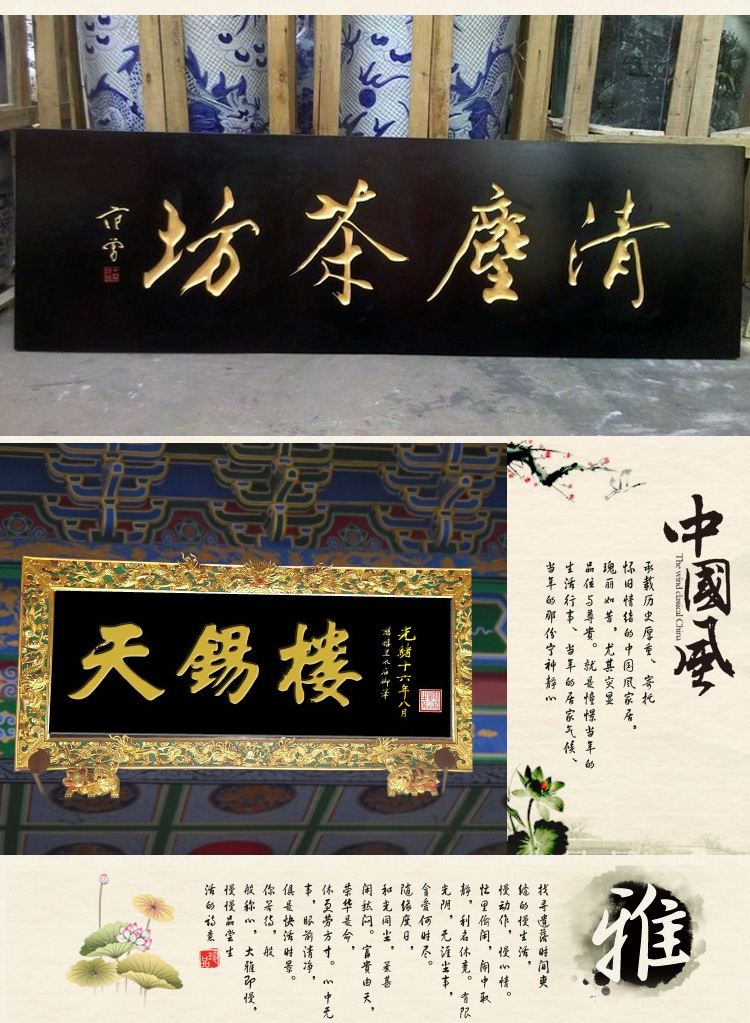 清塵茶坊
范曾
天錫樓
光緒十六年八月
中國風
The wind classical China
承载历史厚重、寄托
怀旧情绪的中国风家居。
瑰丽如昔,尤其突显
品位与尊贵。就是憧憬当年的
生活行事、当年的居家气候、
当年的那份宁神静心
雅
找寻遗落时间夹
缝的慢生活,
慢动作,慢心情。
忙里偷闲,闹中取
静,利名休竞。有限
光阴,无涯尘事,
贪爱何时尽。
随缘度日,
和光同尘,甚
闲愁闷。富贵由天,
荣华是命,
休更劳方寸。心中无
事,眼前清净,
俱是快活时景。
你若待,般
般称心,大雅即慢,
慢慢品尝生
活的诗意